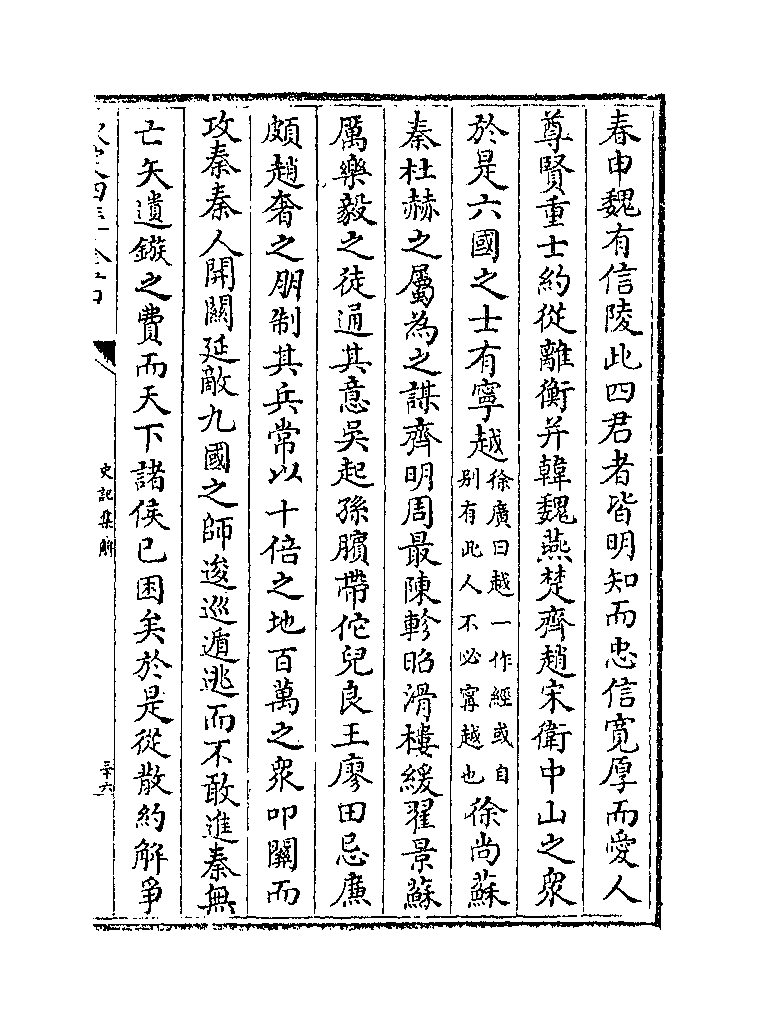 春申魏有信陵此四君者皆明知而忠信寛厚而愛人
尊賢重士約從離衡并韓魏燕楚齊趙宋衛中山之衆
於是六國之士有寧越徐廣曰越一作經或自別有此人不必甯越也徐尚蘇
秦杜赫之屬為之謀齊明周最陳軫昭滑樓緩翟景蘇
厲樂毅之徒通其意吳起孫臏帶佗兒良王廖田忌廉
頗趙奢之朋制其兵常以十倍之地百萬之衆叩關而
攻秦秦人開關延敵九國之師逡巡遁逃而不敢進秦無
亡矢遺鏃之費而天下諸侯已困矣於是從散約解爭
史記集解
三十六